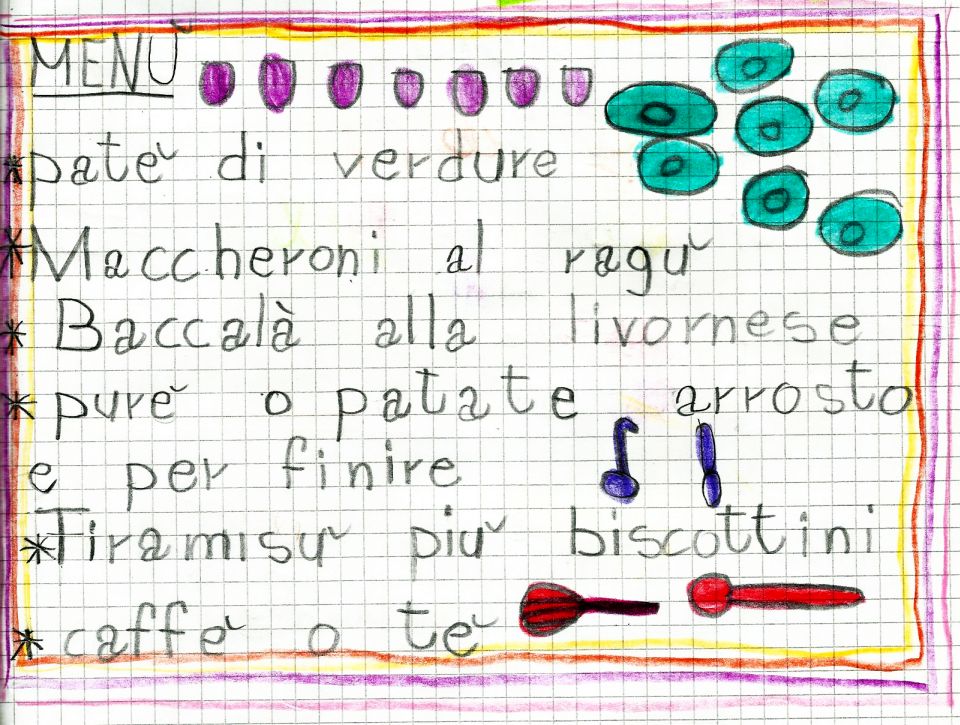 MENÙ
*patè di verdure
*Maccheroni al ragù
*Baccalà alla livornese
*purè o patate arrosto
e per finire
*Tiramisù più biscottini
*caffè o tè